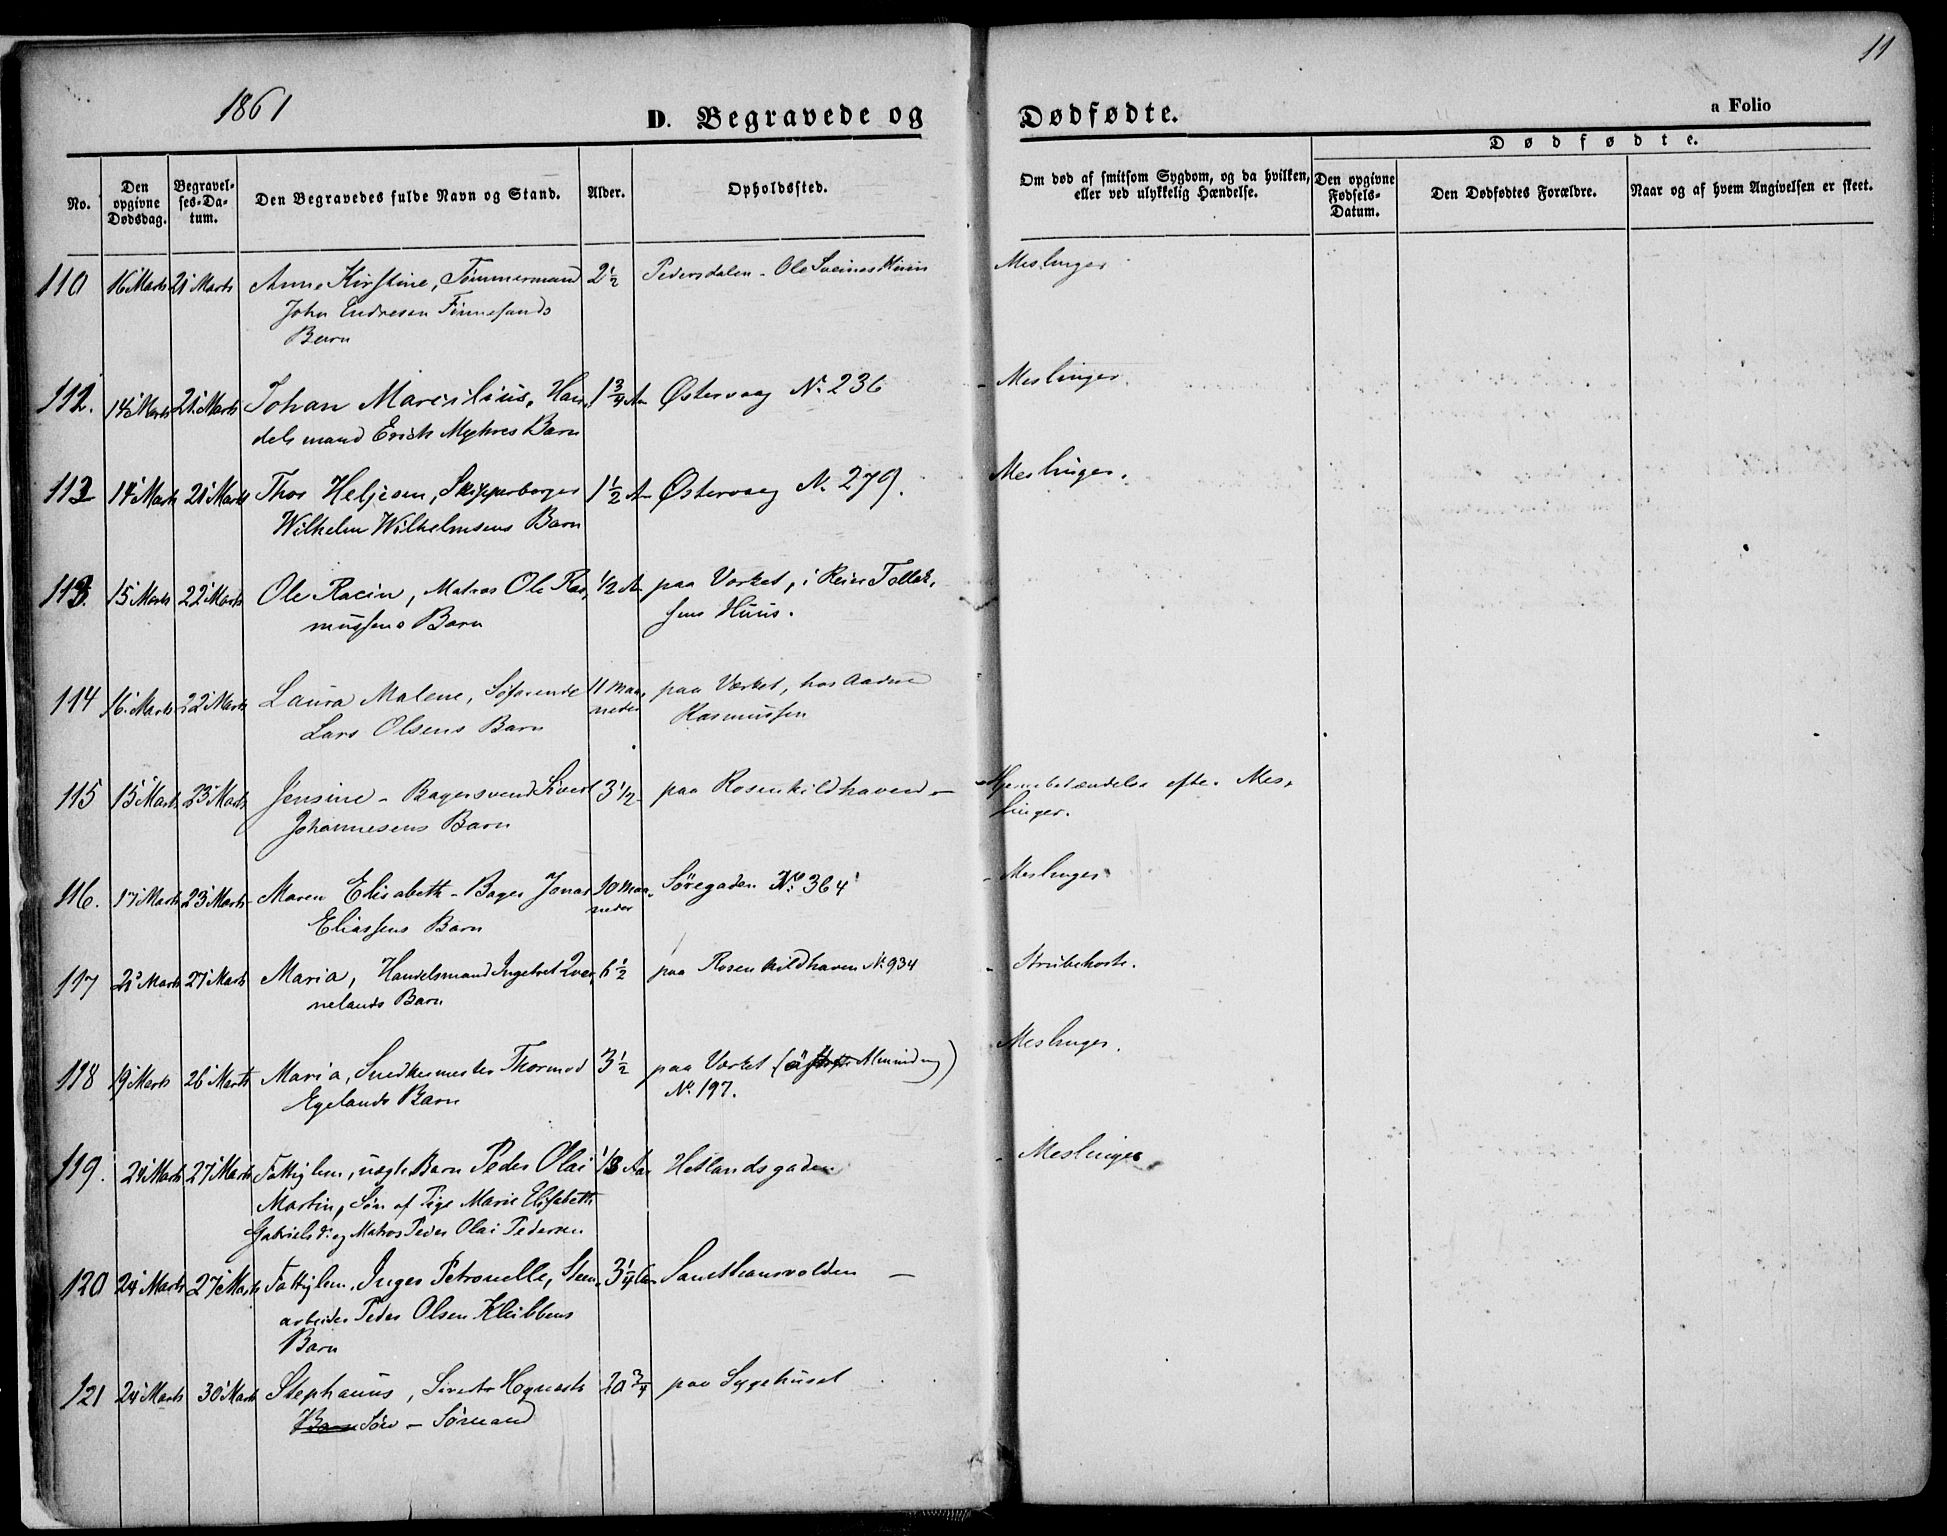 1861
11
D. Begravede og Dødfødte.
a Folio
No.
Den opgivne Dødsdag.
Begravelses-Datum.
Den Begravedes fulde Navn og Stand.
Alder.
Opholdssted.
Om død af smitsom Sygdom, og da hvilken,
eller ved ulykkelig Hændelse.
Dødfødte.
Den opgivne Fødsels-Datum.
Den Dødfødtes Forældre.
Naar og af hvem Angivelsen er skeet.
110 16 Marts 21 Marts Anne Kirstine, Tømmermand 2 1/2 Pedersdalen - Ole Sveines Huus Meslinger
John Endresen Finnesands
Barn
112. 14 Marts 21 Marts Johan Marcilius, Han- 1 3/4 A Østervaag No 236 - Meslinger.
delsmand Erich Myhres Barn
112 14 Marts 21 Marts Thor Heljesen, Skipperborger 1 1/2 A Østervaag No 279. Meslinger.
Wilhelm Wilhelmsens Barn
113. 15 Marts 22 Marts Ole Racin, Matros Ole Ras- 1/2 A paa Værket, i Reier Tollak-
mussens Barn sens Huus.
114 16 Marts 22 Marts Laura Malene, Søfarende 11 Maa- paa Værket, hos Aadne
Lars Olsens Barn neder Rasmussen
115 15 Marts 23 Marts Jensine - Bagersvend Sivert 3 1/2 paa Rosenkildhaven - Hjernebetændelse efter Mes-
Johannesens Barn linger.
116. 17 Marts 23 Marts Maren Elisabeth - Bager Jonas 10 Maa- Søregaden No 364 - Meslinger
Eliassens Barn neder
117 22 Marts 27 Marts Maria, Handelsmand Ingebret Qver- 6 1/2 paa Rosenkildhaven No 934 - Strubehoste.
nelands Barn
118 19 Marts 26 Marts Maria, Snedkermester Thormod 3 1/2 paa Værket (Alminding) Meslinger.
Egelands Barn No 197.
119. 24 Marts 27 Marts Fattiglem, uægte Barn Peder Olai 1/3 Aar Hetlandsgaden - Meslinger
Martin, Søn af Pige Marie Elisabeth
Gabrielsd. og Matros Peder Olai Pedersen
120 24 Marts 27 Marts Fattiglem, Inger Petronelle, Steen- 3 1/4 Aar Sancthansvolden -
arbeider Peder Olsen Kleibbens
Barn
121 24 Marts 30 Marts Stephanus, Siverts Hognests 20 3/4 paa Sygehuset
Barn Søn - Sømand